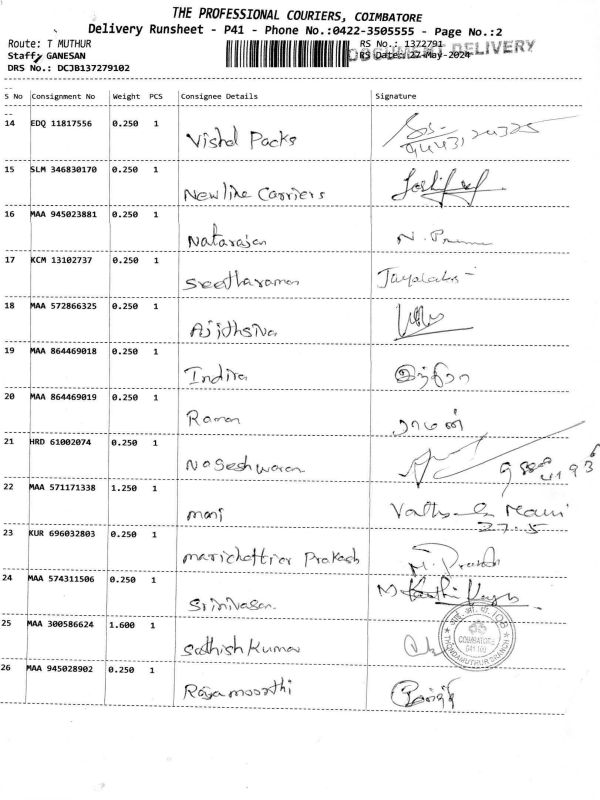 THE PROFESSIONAL COURIERS, COIMBATORE
Delivery Runsheet - P41 - Phone No.:0422-3505555 - Page No.:2
Route: T MUTHUR
RS No.: 1372791
DOCUMENT DELIVERY
Staff: GANESAN
RS Date: 27-May-2024
DRS No.: DCJB137279102
S No Consignment No Weight PCS Consignee Details Signature
14 EDQ 11817556 0.250 1 Vishal Packs
15 SLM 346830170 0.250 1 Newline Carriers
16 MAA 945023881 0.250 1 Natarajan
17 KCM 13102737 0.250 1 Sreetharaman Jayalaks
18 MAA 572866325 0.250 1 Ajithsiva
19 MAA 864469018 0.250 1 Indira இந்திரா
20 MAA 864469019 0.250 1 Raman ராமன்
21 HRD 61002074 0.250 1 Nageshwaran
22 MAA 571171338 1.250 1 mani
27.5
23 KUR 696032803 0.250 1 marichettiar Prakash M. Prakash
24 MAA 574311506 0.250 1 Srinivasan
25 MAA 300586624 1.600 1 Sathish Kumar
COIMBATORE
641 109
THONDAMUTHUR BRANCH
26 MAA 945028902 0.250 1 Rajamoorthi